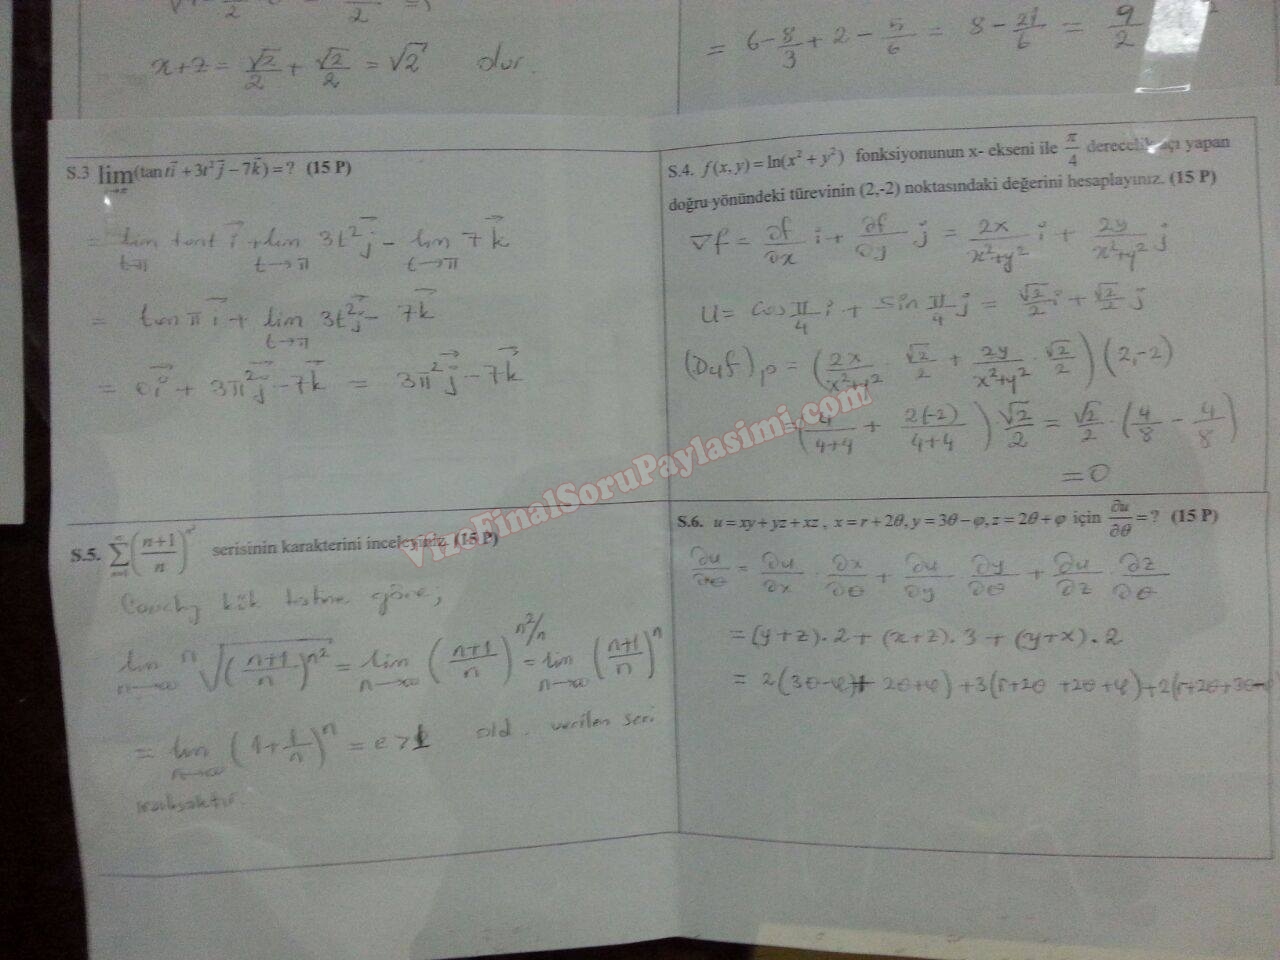 x+z = √2/2 + √2/2 = √2 dur.
= 6 - 8/3 + 2 - 5/6 = 8 - 21/6 = 9/2
S.3 lim(tan t i⃗ + 3t² j⃗ - 7k⃗) = ? (15 P)
= lim tant i⃗ + lim 3t² j⃗ - lim 7k⃗
t→π t→π t→π
= tan π i⃗ + lim 3t² j⃗ - 7k⃗
t→π
= 0i⃗ + 3π² j⃗ - 7k⃗ = 3π² j⃗ - 7k⃗
S.4. f(x, y) = ln(x² + y²) fonksiyonunun x- ekseni ile π/4 derecelik açı yapan
doğru yönündeki türevinin (2,-2) noktasındaki değerini hesaplayınız. (15 P)
∇f = ∂f/∂x i + ∂f/∂y j = 2x/(x²+y²) i + 2y/(x²+y²) j
U = cos π/4 i + sin π/4 j = √2/2 i + √2/2 j
(Duf)p = (2x/(x²+y²) · √2/2 + 2y/(x²+y²) · √2/2)(2,-2)
= (4/(4+4) + 2(-2)/(4+4)) √2/2 = √2/2 · (4/8 - 4/8)
= 0
VizeFinalSoruPaylasimi.com
S.5. ∑ ((n+1)/n)^n² serisinin karakterini inceleyiniz. (15 P)
Cauchy kök testine göre,
lim ⁿ√((n+1)/n)^n² = lim ((n+1)/n)^n²/n = lim ((n+1)/n)^n
n→∞ n→∞ n→∞
= lim (1 + 1/n)^n = e > 1 old. verilen seri
n→∞
ıraksaktır.
S.6. u = xy + yz + xz , x = r + 2θ, y = 3θ - φ, z = 2θ + φ için ∂u/∂θ = ? (15 P)
∂u/∂θ = ∂u/∂x · ∂x/∂θ + ∂u/∂y · ∂y/∂θ + ∂u/∂z · ∂z/∂θ
= (y+z).2 + (x+z).3 + (y+x).2
= 2(3θ-φ+ 2θ+φ) + 3(r+2θ +2θ+φ) + 2(r+2θ+3θ-